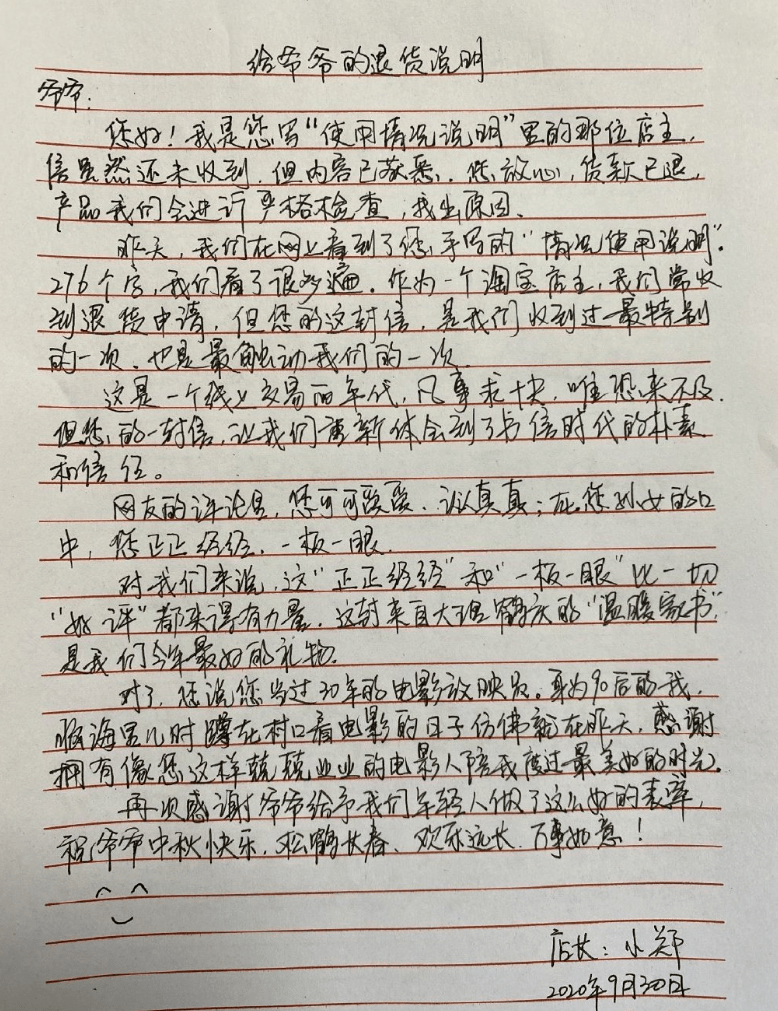 给爷爷的退货说明
爷爷:
您好！我是您写“使用情况说明”里的那位店主，
信虽然还未收到，但内容已获悉。您放心，货款已退，
产品我们会进行严格检查，找出原因。
昨天，我们在网上看到了您手写的“情况使用说明”。
276个字，我们看了很多遍。作为一个淘宝店主，我们常收
到退货申请，但您的这封信，是我们收到过最特别
的一次，也是最触动我们的一次。
这是一个线上交易的年代，凡事求快，唯恐来不及，
但您的一封信，让我们重新体会到了书信时代的朴素
和信任。
网友的评论里，您可可爱爱、认认真真；在您孙女的口
中，您正正经经、一板一眼。
对我们来说，这“正正经经”和“一板一眼”比一切
“好评”都来得有力量。这封来自大理鹤庆的“温暖家书”，
是我们今年最好的礼物。
对了，您说您当过30年的电影放映员。身为90后的我，
脑海里儿时蹲在村口看电影的日子仿佛就在昨天，感谢
拥有像您这样兢兢业业的电影人陪我度过最美好的时光。
再次感谢爷爷给予我们年轻人做了这么好的表率，
祝爷爷中秋快乐，松鹤长春、欢乐远长、万事如意！
店长：小郑
2020年9月30日